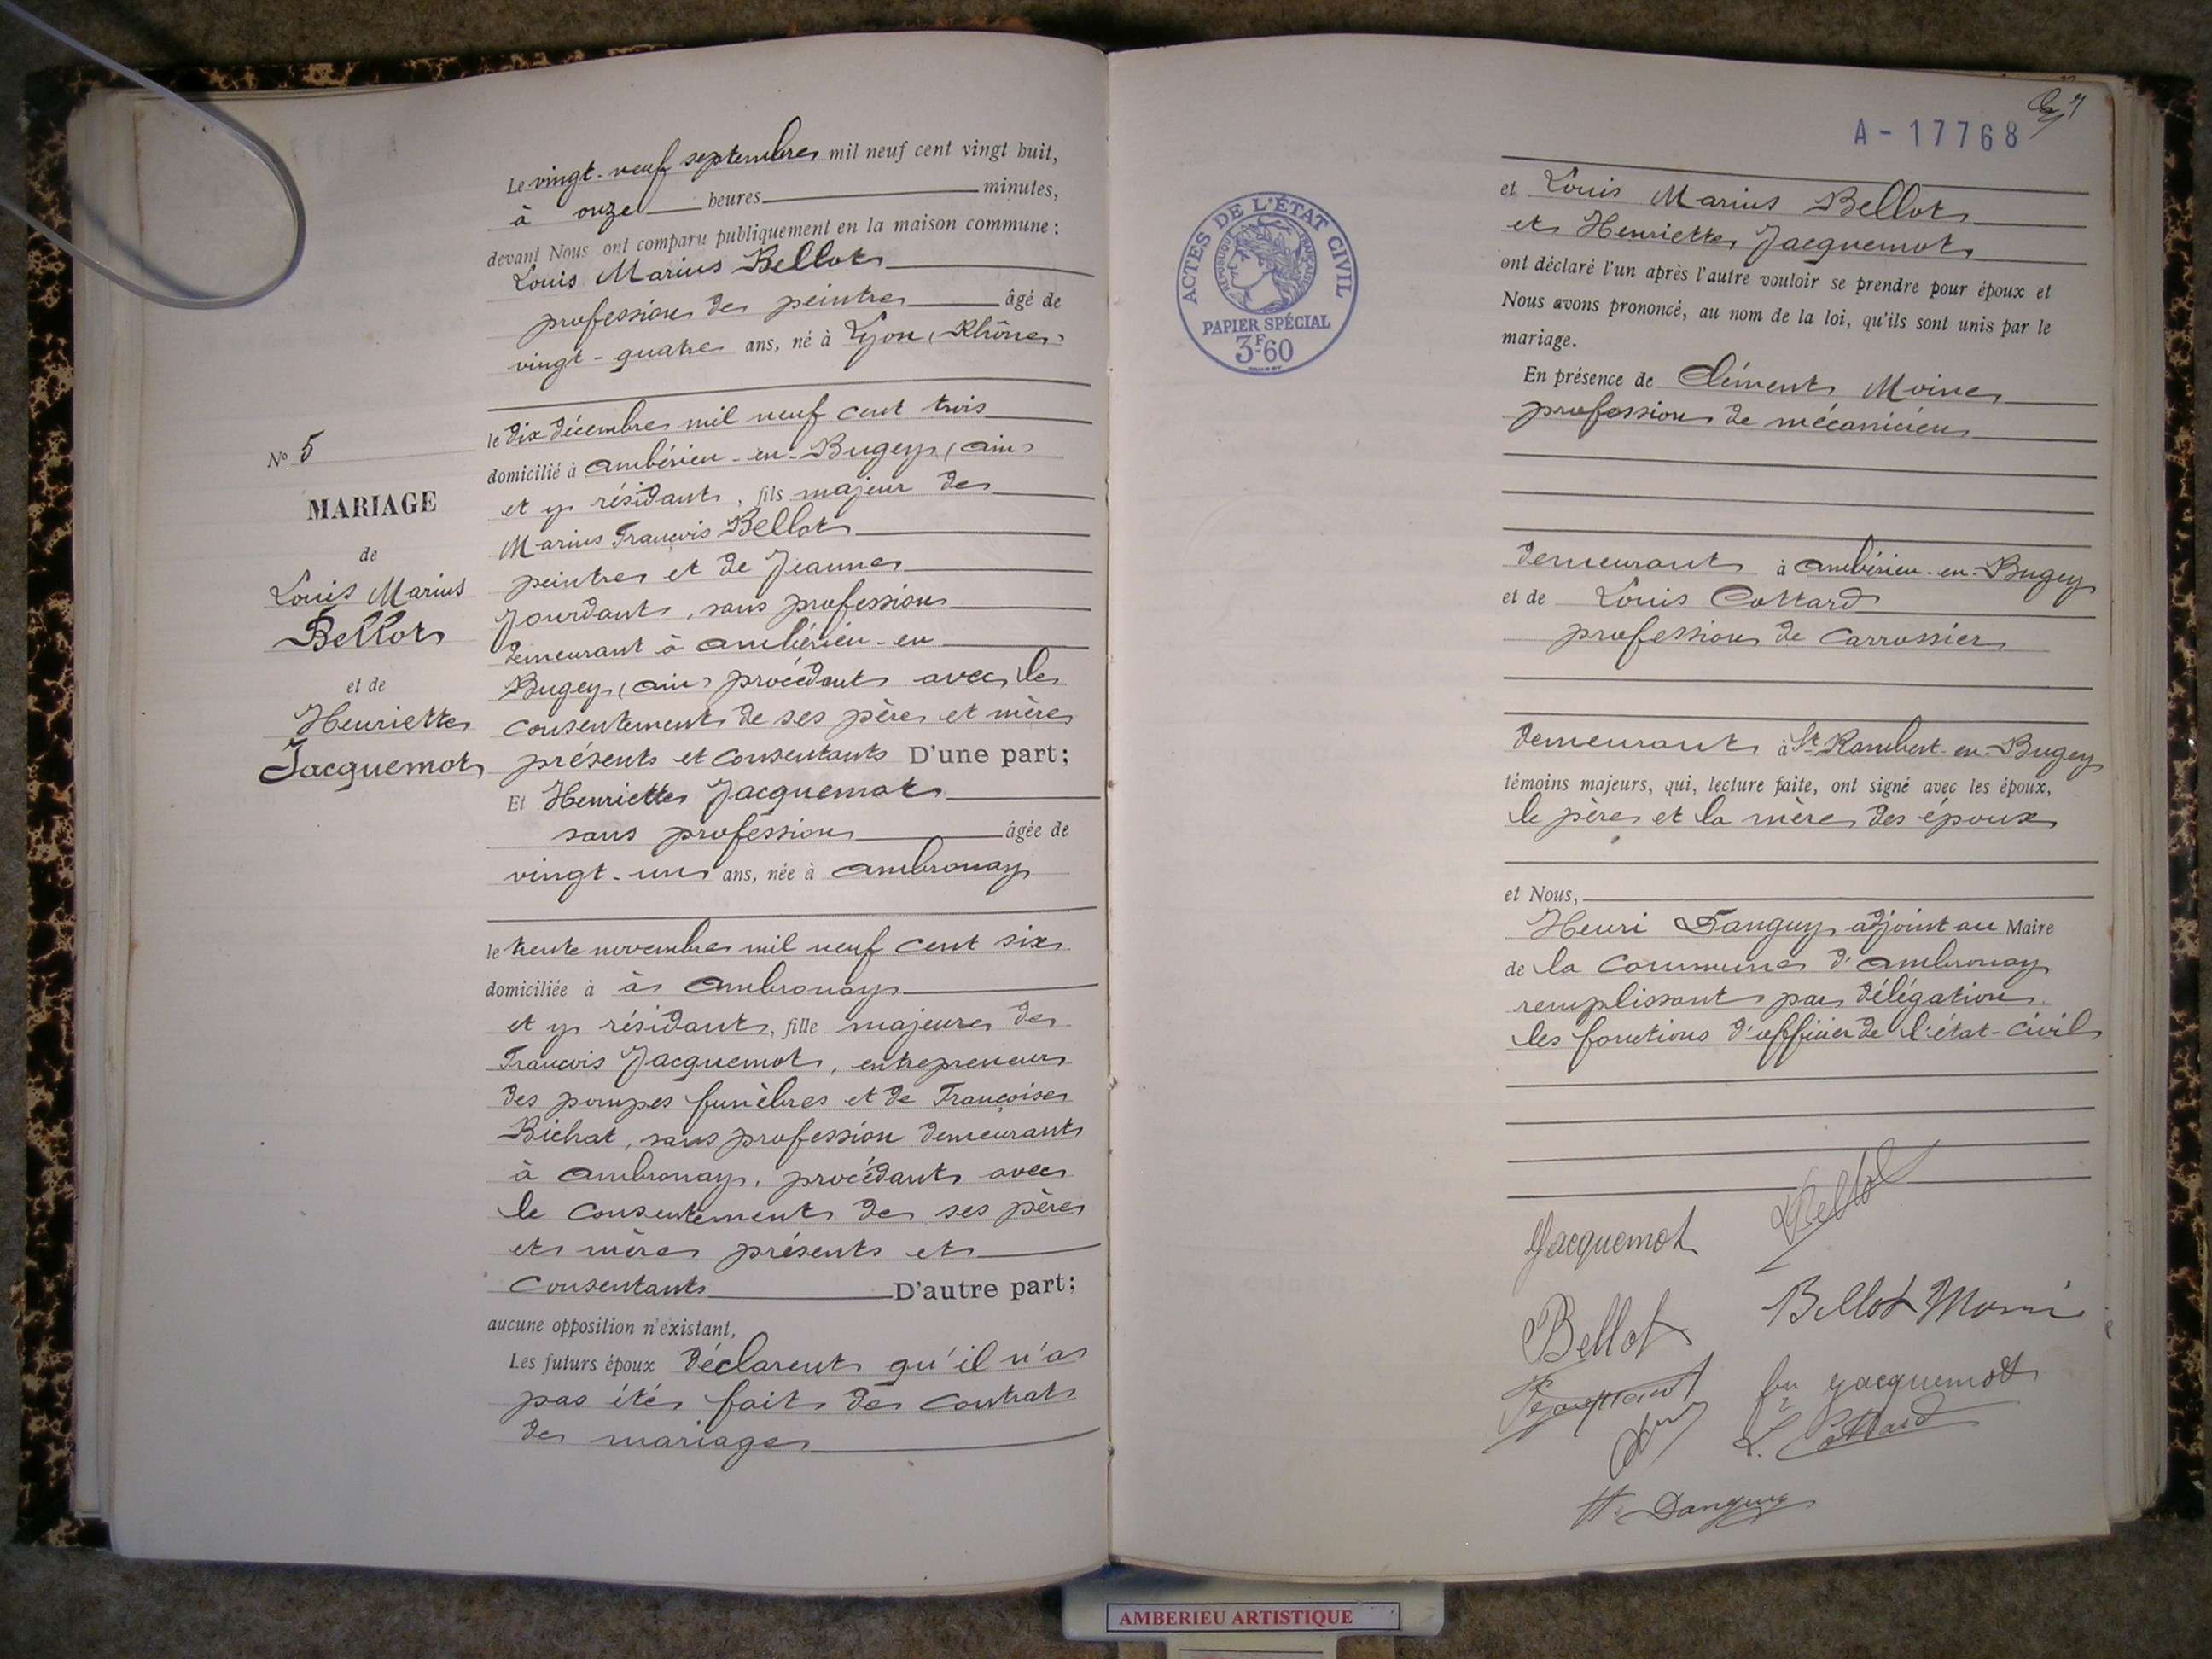 Le vingt-neuf septembre mil neuf cent vingt huit,
à onze heures minutes,
devant Nous ont comparu publiquement en la maison commune :
Louis Marius Bellot
profession de peintre âgé de
vingt-quatre ans, né à Lyon (Rhône)
le dix décembre mil neuf cent trois
domicilié à Ambérieu-en-Bugey (Ain)
et y résidant, fils majeur de
Marius François Bellot
peintre et de Jeanne
Jourdant, sans profession
demeurant à Ambérieu-en
Bugey (Ain) procédant avec le
consentement de ses père et mère
présents et consentants D'une part;
Et Henriette Jacquemot
sans profession âgée de
vingt-un ans, née à Ambronay
le trente novembre mil neuf cent six
domiciliée à à Ambronay
et y résidant, fille majeure de
François Jacquemot, entrepreneur
des pompes funèbres et de Françoise
Bichat, sans profession demeurant
à Ambronay, procédant avec
le consentement de ses père
et mère présents et
consentants D'autre part;
aucune opposition n'existant,
Les futurs époux déclarent qu'il n'a
pas été fait de contrat
de mariage
No 5
MARIAGE
de
Louis Marius
Bellot
et de
Henriette
Jacquemot
A-17768
ACTES DE L'ÉTAT CIVIL
RÉPUBLIQUE FRANÇAISE
PAPIER SPÉCIAL
3F60
et Louis Marius Bellot
et Henriette Jacquemot
ont déclaré l'un après l'autre vouloir se prendre pour époux et
Nous avons prononcé, au nom de la loi, qu'ils sont unis par le
mariage.
En présence de Clément Moine
profession de mécanicien
demeurant à Ambérieu-en-Bugey
et de Louis Cottard
profession de carrossier
demeurant à St Rambert-en-Bugey
témoins majeurs, qui, lecture faite, ont signé avec les époux,
le père et la mère des époux
et Nous,
Henri Tanguy adjoint au Maire
de la commune d'Ambronay
remplissant par délégation
les fonctions d'officier de l'état-civil
Jacquemot LBellot
Bellot Bellot
Jacquemot
L. Cottard
H. Danguy
AMBERIEU ARTISTIQUE